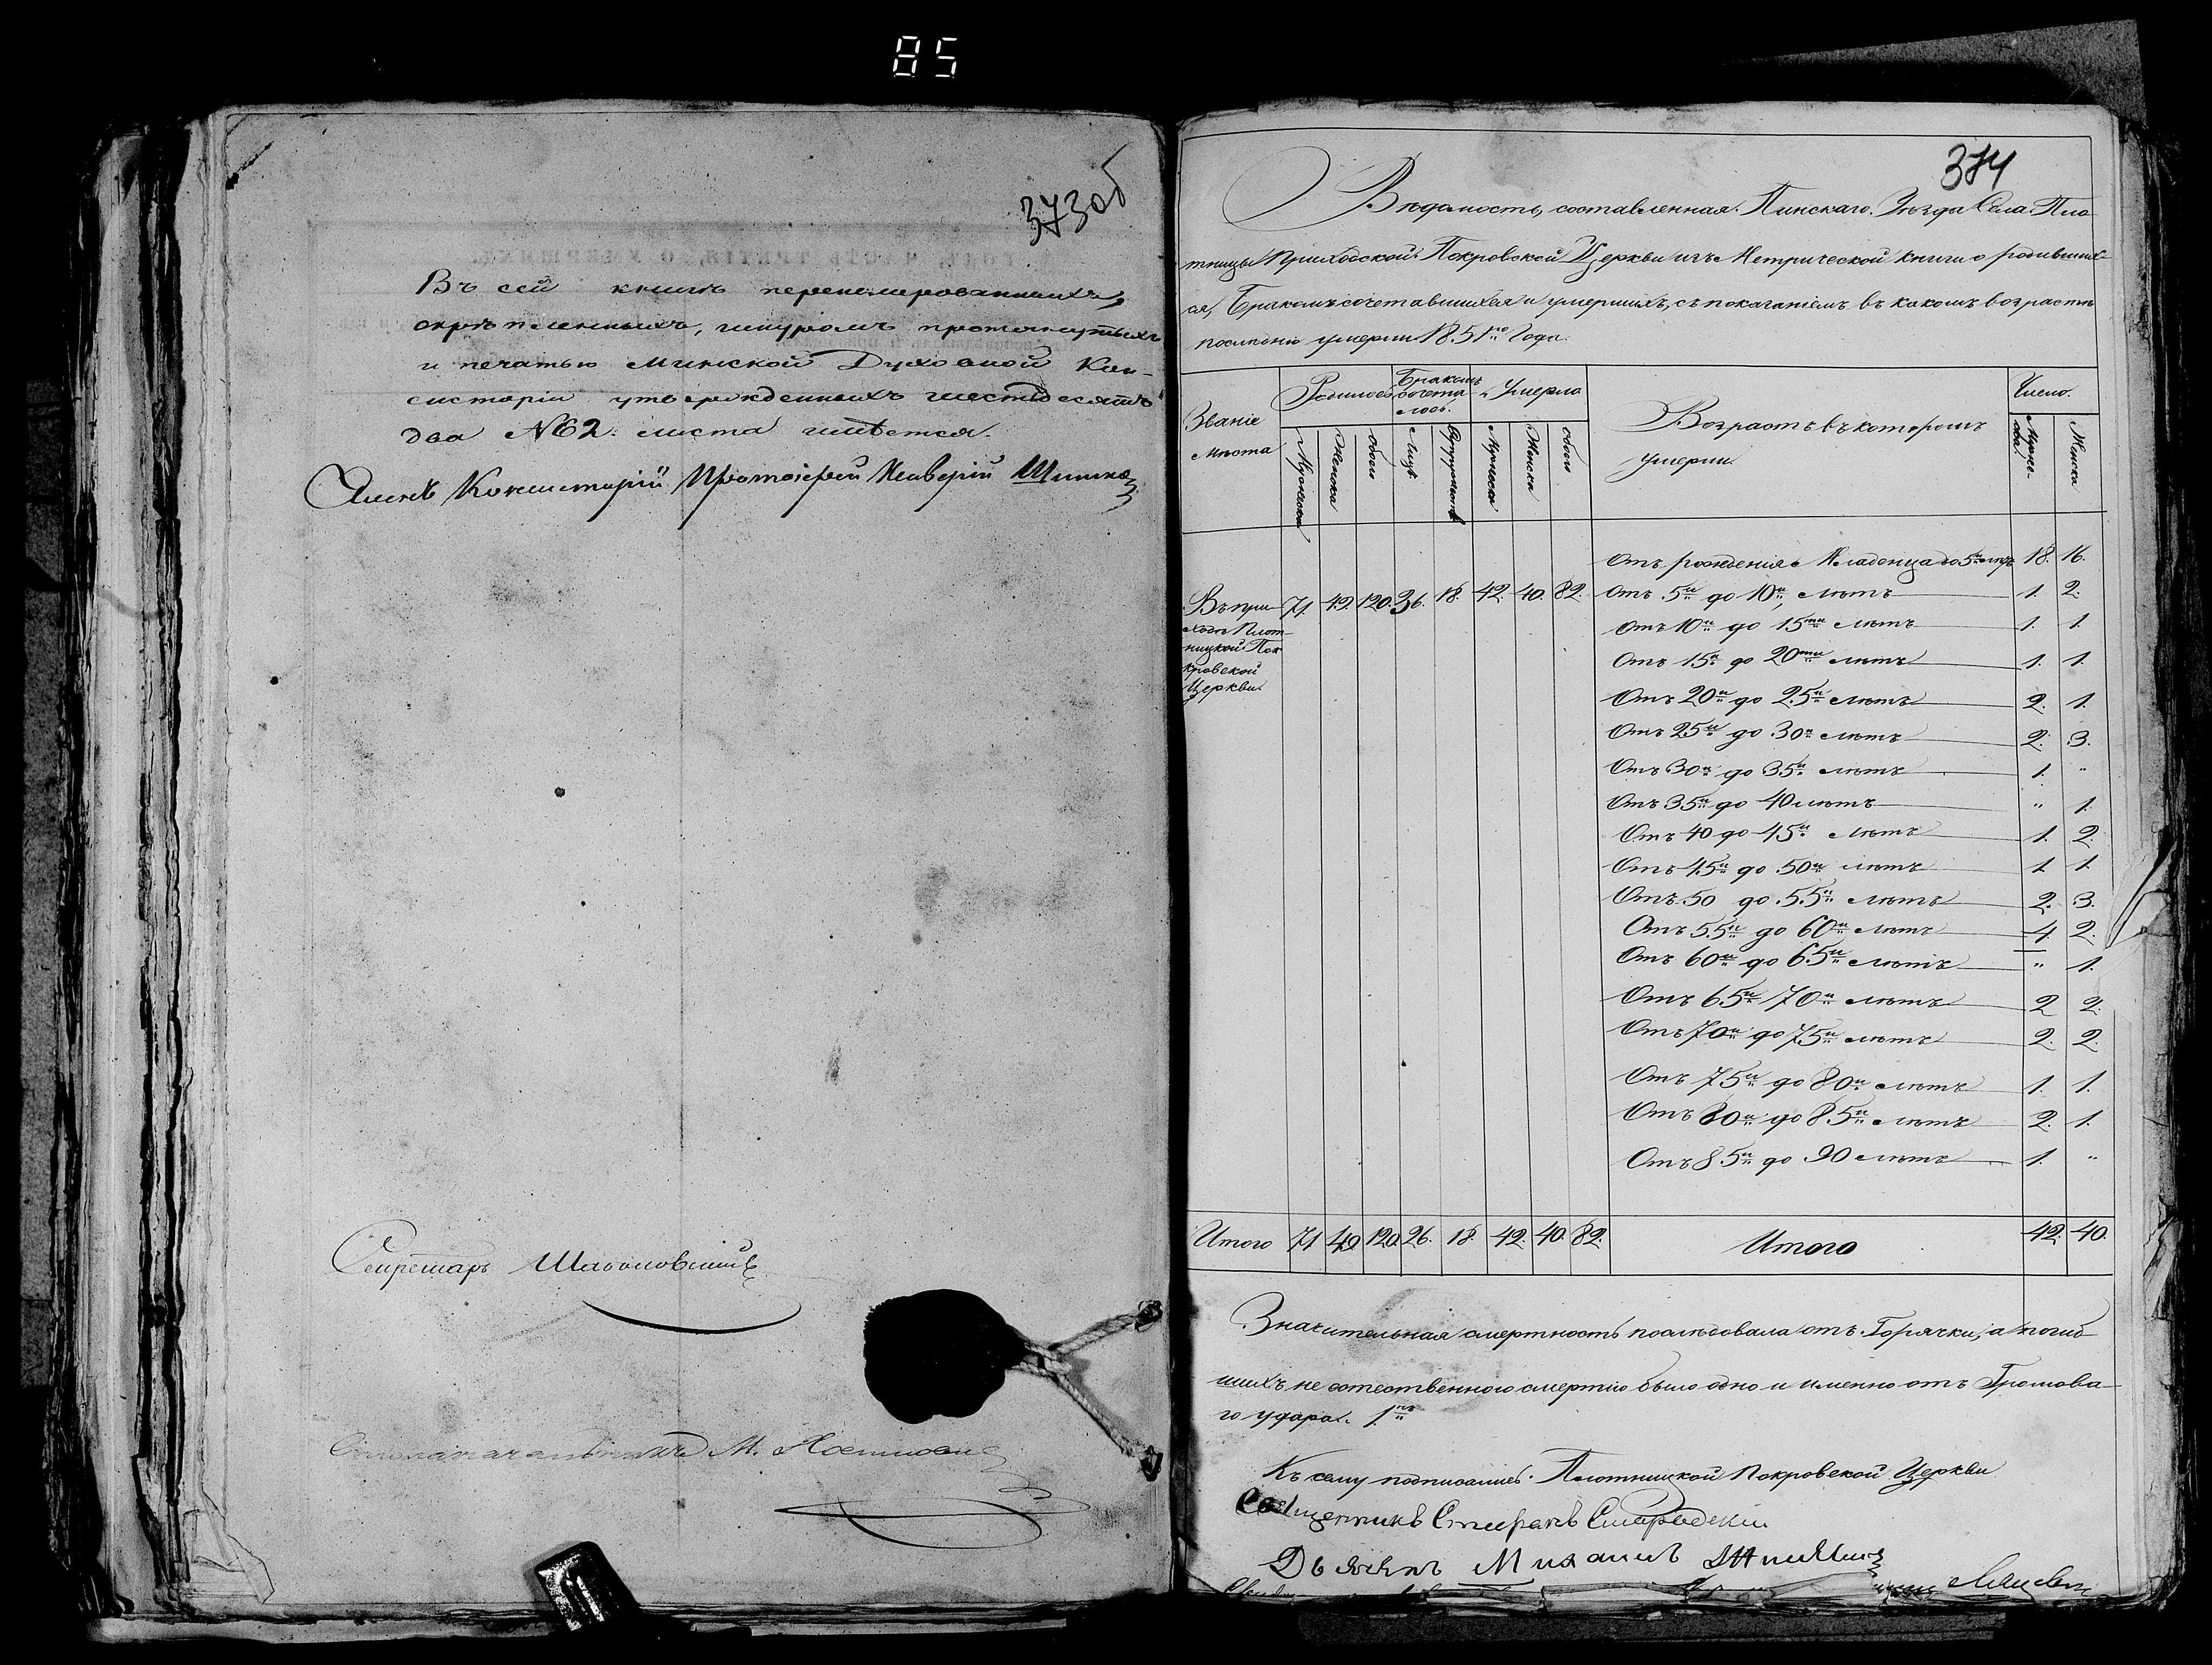 85
373об
Въ сей книге перенумерованныхъ,
скрѣпленныхъ, шнуромъ протянутыхъ
и печатью Минской Духовной Кон-
систоріи утвержденныхъ шестьдесятъ
два №62. листа имѣется.
Членъ Консисторіи Протоіерей
Секретарь
Столоначальникъ М.
374
Вѣдомость, составленная Пинскаго Уѣзда Села Пло-
тницы Приходской Покровской Церкви изъ Метрической книги о родивших-
ся, Бракомъ сочетавшихся и умершихъ, съ показаніемъ въ какомъ возрастѣ
умерли 1851го Года.
Званіе мѣста
Родилось
Бракомъ сочета-лось
Умерло
Возрастъ въ которомъ умерли
Число
Мужеска Женска обоего Лицъ Супружествъ Мужеска Женска обоего
Мужес-ка Женска
Отъ рожденія Младенца до 5и лѣтъ 18. 16.
Въ при-
ходѣ Плот-
ницкой По-
кровской
Церкви
71. 49. 120. 36. 18. 42. 40. 82.
Отъ 5и до 10и лѣтъ 1. 2.
Отъ 10и до 15ти лѣтъ 1. 1.
Отъ 15и до 20ти лѣтъ 1. 1.
Отъ 20и до 25и лѣтъ 2. 1.
Отъ 25и до 30и лѣтъ 2. 3.
Отъ 30и до 35и лѣтъ 1. "
Отъ 35и до 40 лѣтъ " 1.
Отъ 40 до 45и лѣтъ 1. 2.
Отъ 45и до 50и лѣтъ 1. 1.
Отъ 50 до 55и лѣтъ 2. 3.
Отъ 55и до 60и лѣтъ 4. 2.
Отъ 60и до 65и лѣтъ " 1.
Отъ 65и 70и лѣтъ 2 2.
Отъ 70и до 75и лѣтъ 2. 2.
Отъ 75и до 80и лѣтъ 1. 1.
Отъ 80и до 85и лѣтъ 2. 1.
Отъ 85и до 90 лѣтъ 1. "
Итого 71 49 120. 26. 18. 42. 40. 82. Итого 42. 40.
Значительная смертность послѣдовала отъ Горячки, а погиб-
шихъ не естественною смертію было одно и именно отъ Громова-
го удара. 1
Къ сему подписались Плотницкой Покровской Церкви
Священникъ Стефанъ
Дьячекъ Михаилъ